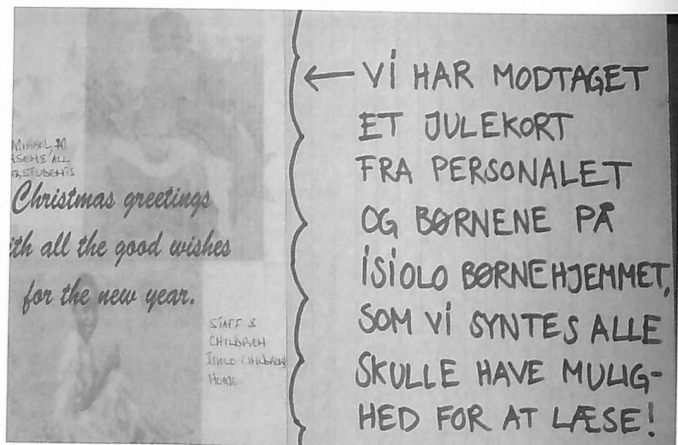 & STUDENTS
Christmas greetings
all the good wishes
for the new year.
STAFF &
CHILDREN
ISIOLO CHILDREN
HOME
← Vi HAR MODTAGET
ET JULEKORT
FRA PERSONALET
OG BØRNENE PÅ
iSiOLO BØRNEHJEMMET,
SOM Vi SYNTES ALLE
SKULLE HAVE MULIG-
HED FOR AT LÆSE!